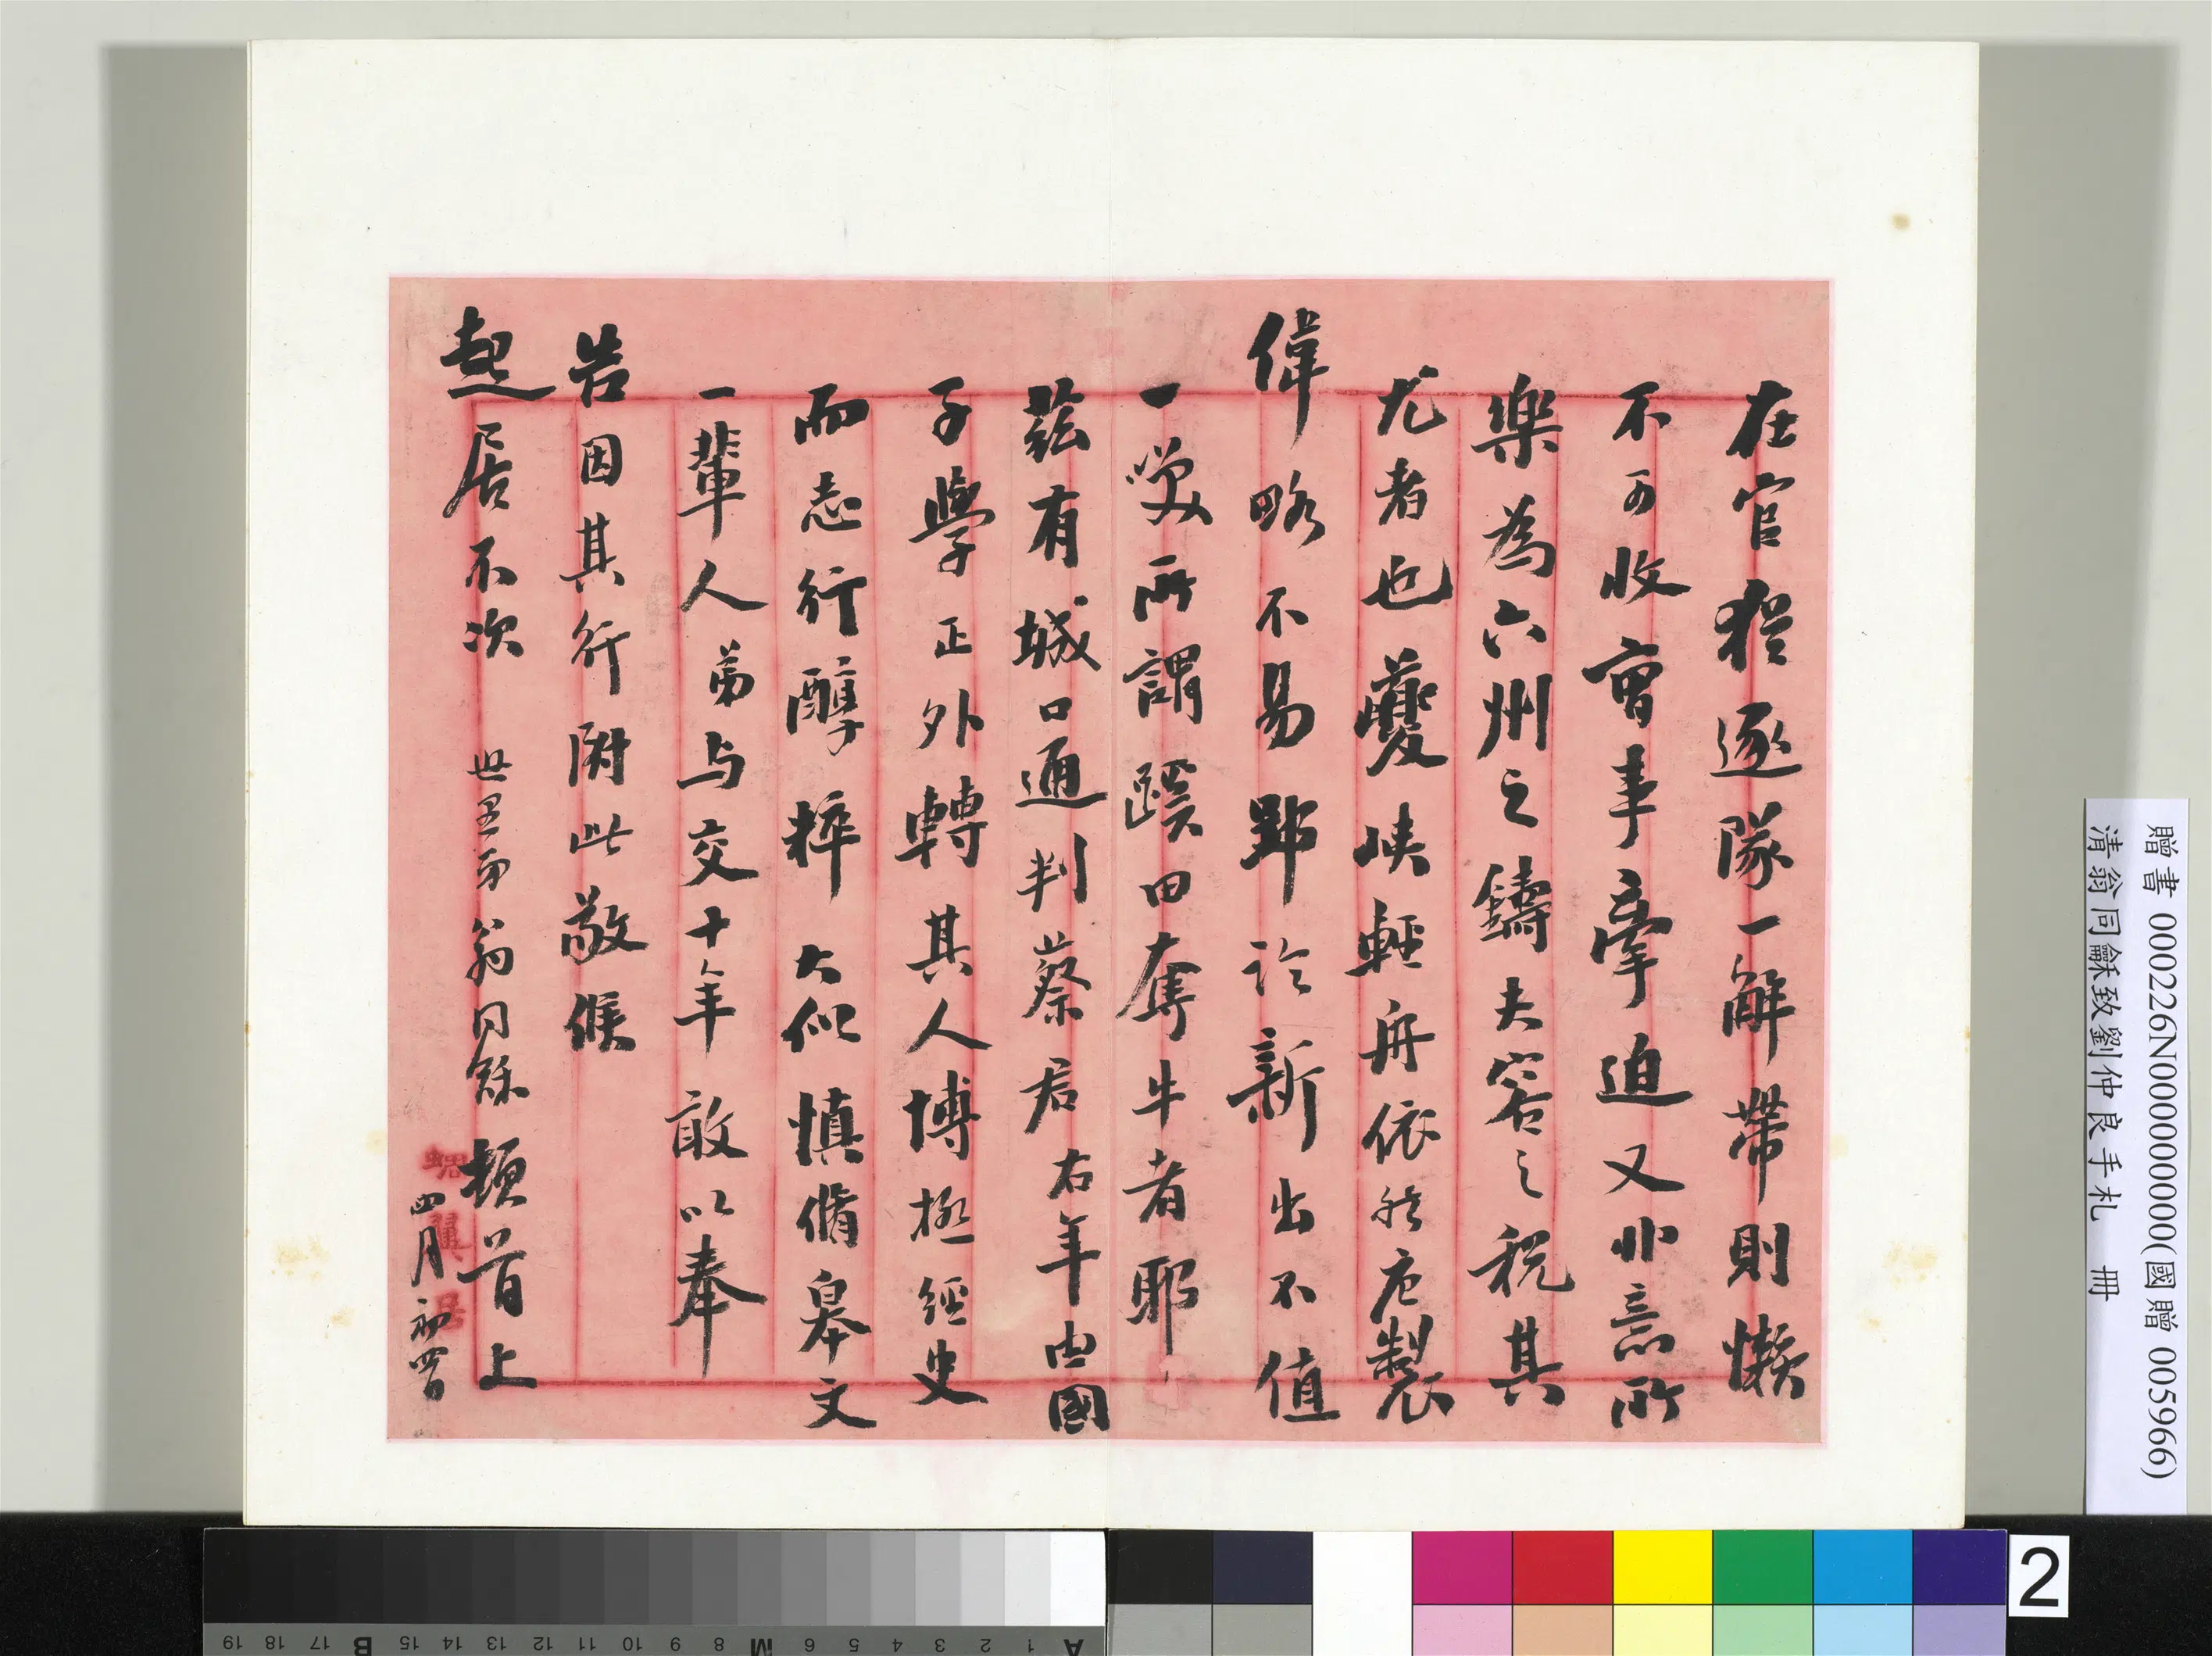 在官猶逐隊一解帶則懶
不可收會事牽迫又非意所
樂為六州之鑄大容之税其
尤者也夔峽輕舟依然庀製
偉略不易郢論新出不值
一笑所謂蹊田奪牛者耶
茲有城口通判蔡君右年由國
子學正外轉其人博極經史
而志行醇粹大似慎脩皋文
一輩人弟与交十年敢以奉
告因其行附此敬候
起居不次 世愚弟翁同龢頓首上
四月初四日
贈書 000226N000000000(國贈 005966)
清翁同龢致劉仲良手札 冊
2
A 1 2 3 4 5 6 M 8 9 10 11 12 13 14 15 B 17 18 19